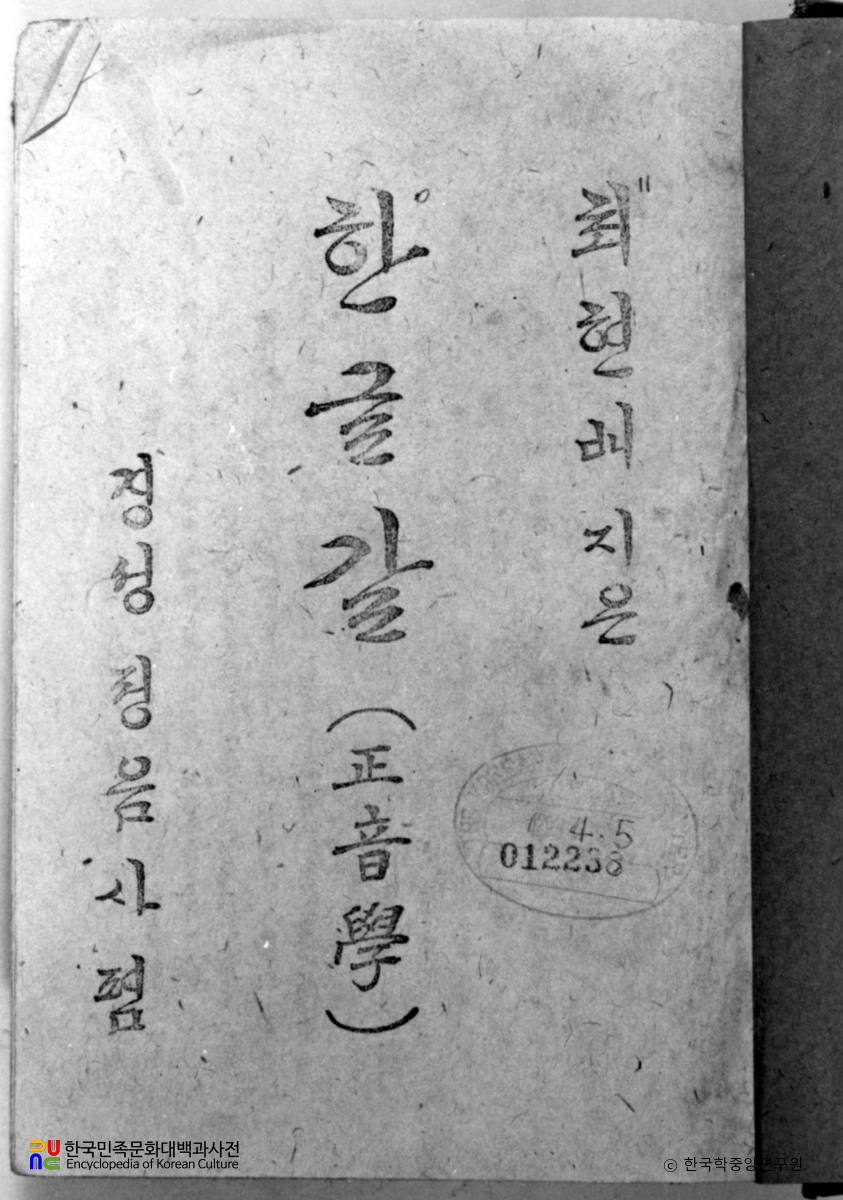 최현배 지은
한글갈 (正音學)
경성 정음사 폄
4.5
012238
한국민족문화대백과사전
Encyclopedia of Korean Culture
© 한국학중앙연구원